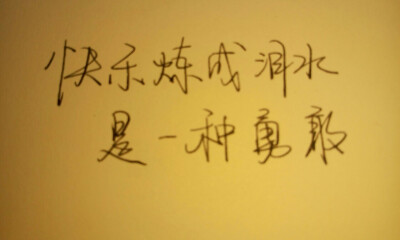 快乐炼成泪水
是一种勇敢